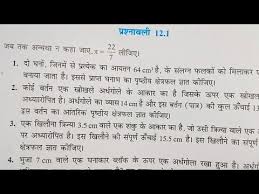 प्रश्नावली 12.1
जब तक अन्यथा न कहा जाए, π = 22/7 लीजिए।
1. दो घनों, जिनमें से प्रत्येक का आयतन 64 cm³ है, के संलग्न फलकों को मिलाकर
बनाया जाता है। इससे प्राप्त घनाभ का पृष्ठीय क्षेत्रफल ज्ञात कीजिए।
2. कोई बर्तन एक खोखले अर्धगोले के आकार का है जिसके ऊपर एक खोखला
अध्यारोपित है। अर्धगोले का व्यास 14 cm है और इस बर्तन (पात्र) की कुल ऊँचाई 13
का आंतरिक पृष्ठीय क्षेत्रफल ज्ञात कीजिए।
3. एक खिलौना त्रिज्या 3.5 cm वाले एक शंकु के आकार का है, जो उसी त्रिज्या वाले एक
पर अध्यारोपित है। इस खिलौने की संपूर्ण ऊँचाई 15.5 cm है। इस खिलौने का
क्षेत्रफल ज्ञात कीजिए।
4. भुजा 7 cm वाले एक घनाकार ब्लॉक के ऊपर एक अर्धगोला रखा हुआ है।